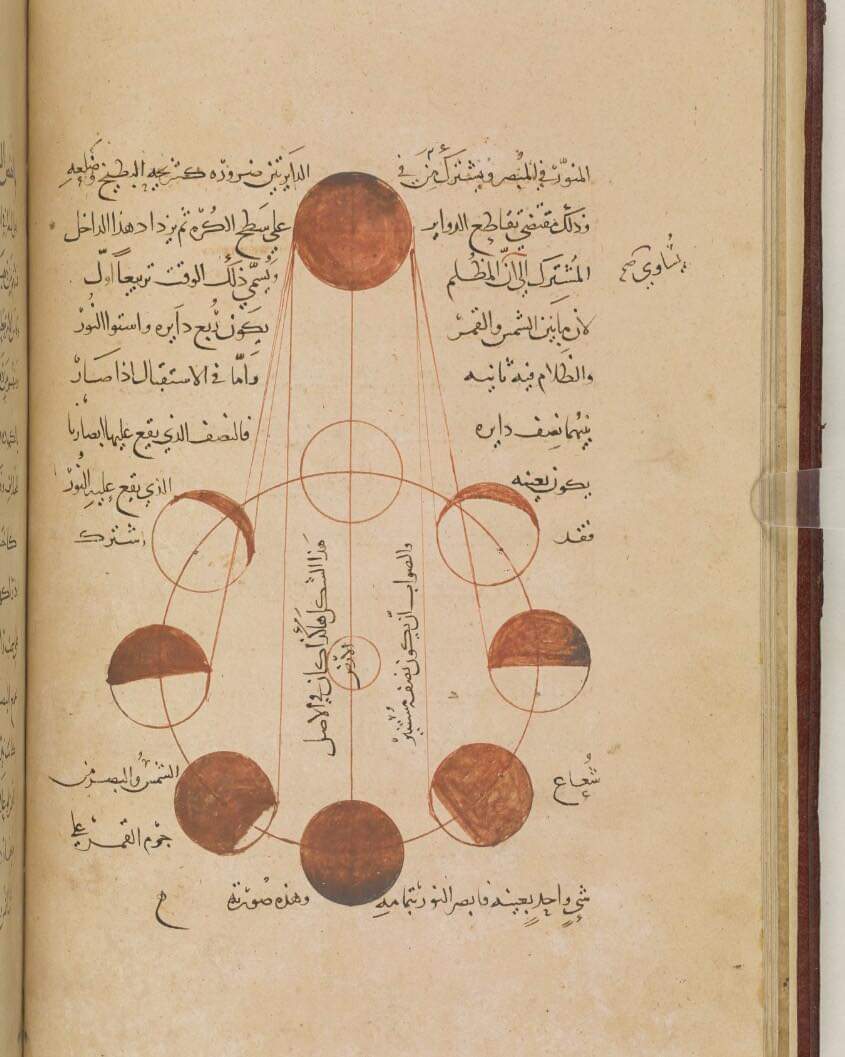 المنوّر في المبصر ويشترك من في الدايرتين ضرورة كتزيجه البطيخ وضلعه
وذلك مقتضى تقاطع الدواير على سطح الكرّه ثم يزداد هذا الداخل
المشترك الى انّ المظلم ويسمّى ذلك الوقت تربيعاً اول
يساوى صح
لان ما بين الشمس والقمر يكون ربع دايره واستوا النور
والظلام فيه ثانيه وامّا في الاستقبال اذا صار
بينهما نصف دايره فالنصف الذي يقع عليها ابصارنا
يكون بعينه الذي يقع عليه النور
فقد اشترك
هذا الشكل هكذا كان في الاصل
الارض
والصواب ان يكون نصفه مستنير
شعاع الشمس والبصر من
جرم القمر على
شي واحد بعينه فابصر النور بتمامه وهذه صورته
ح